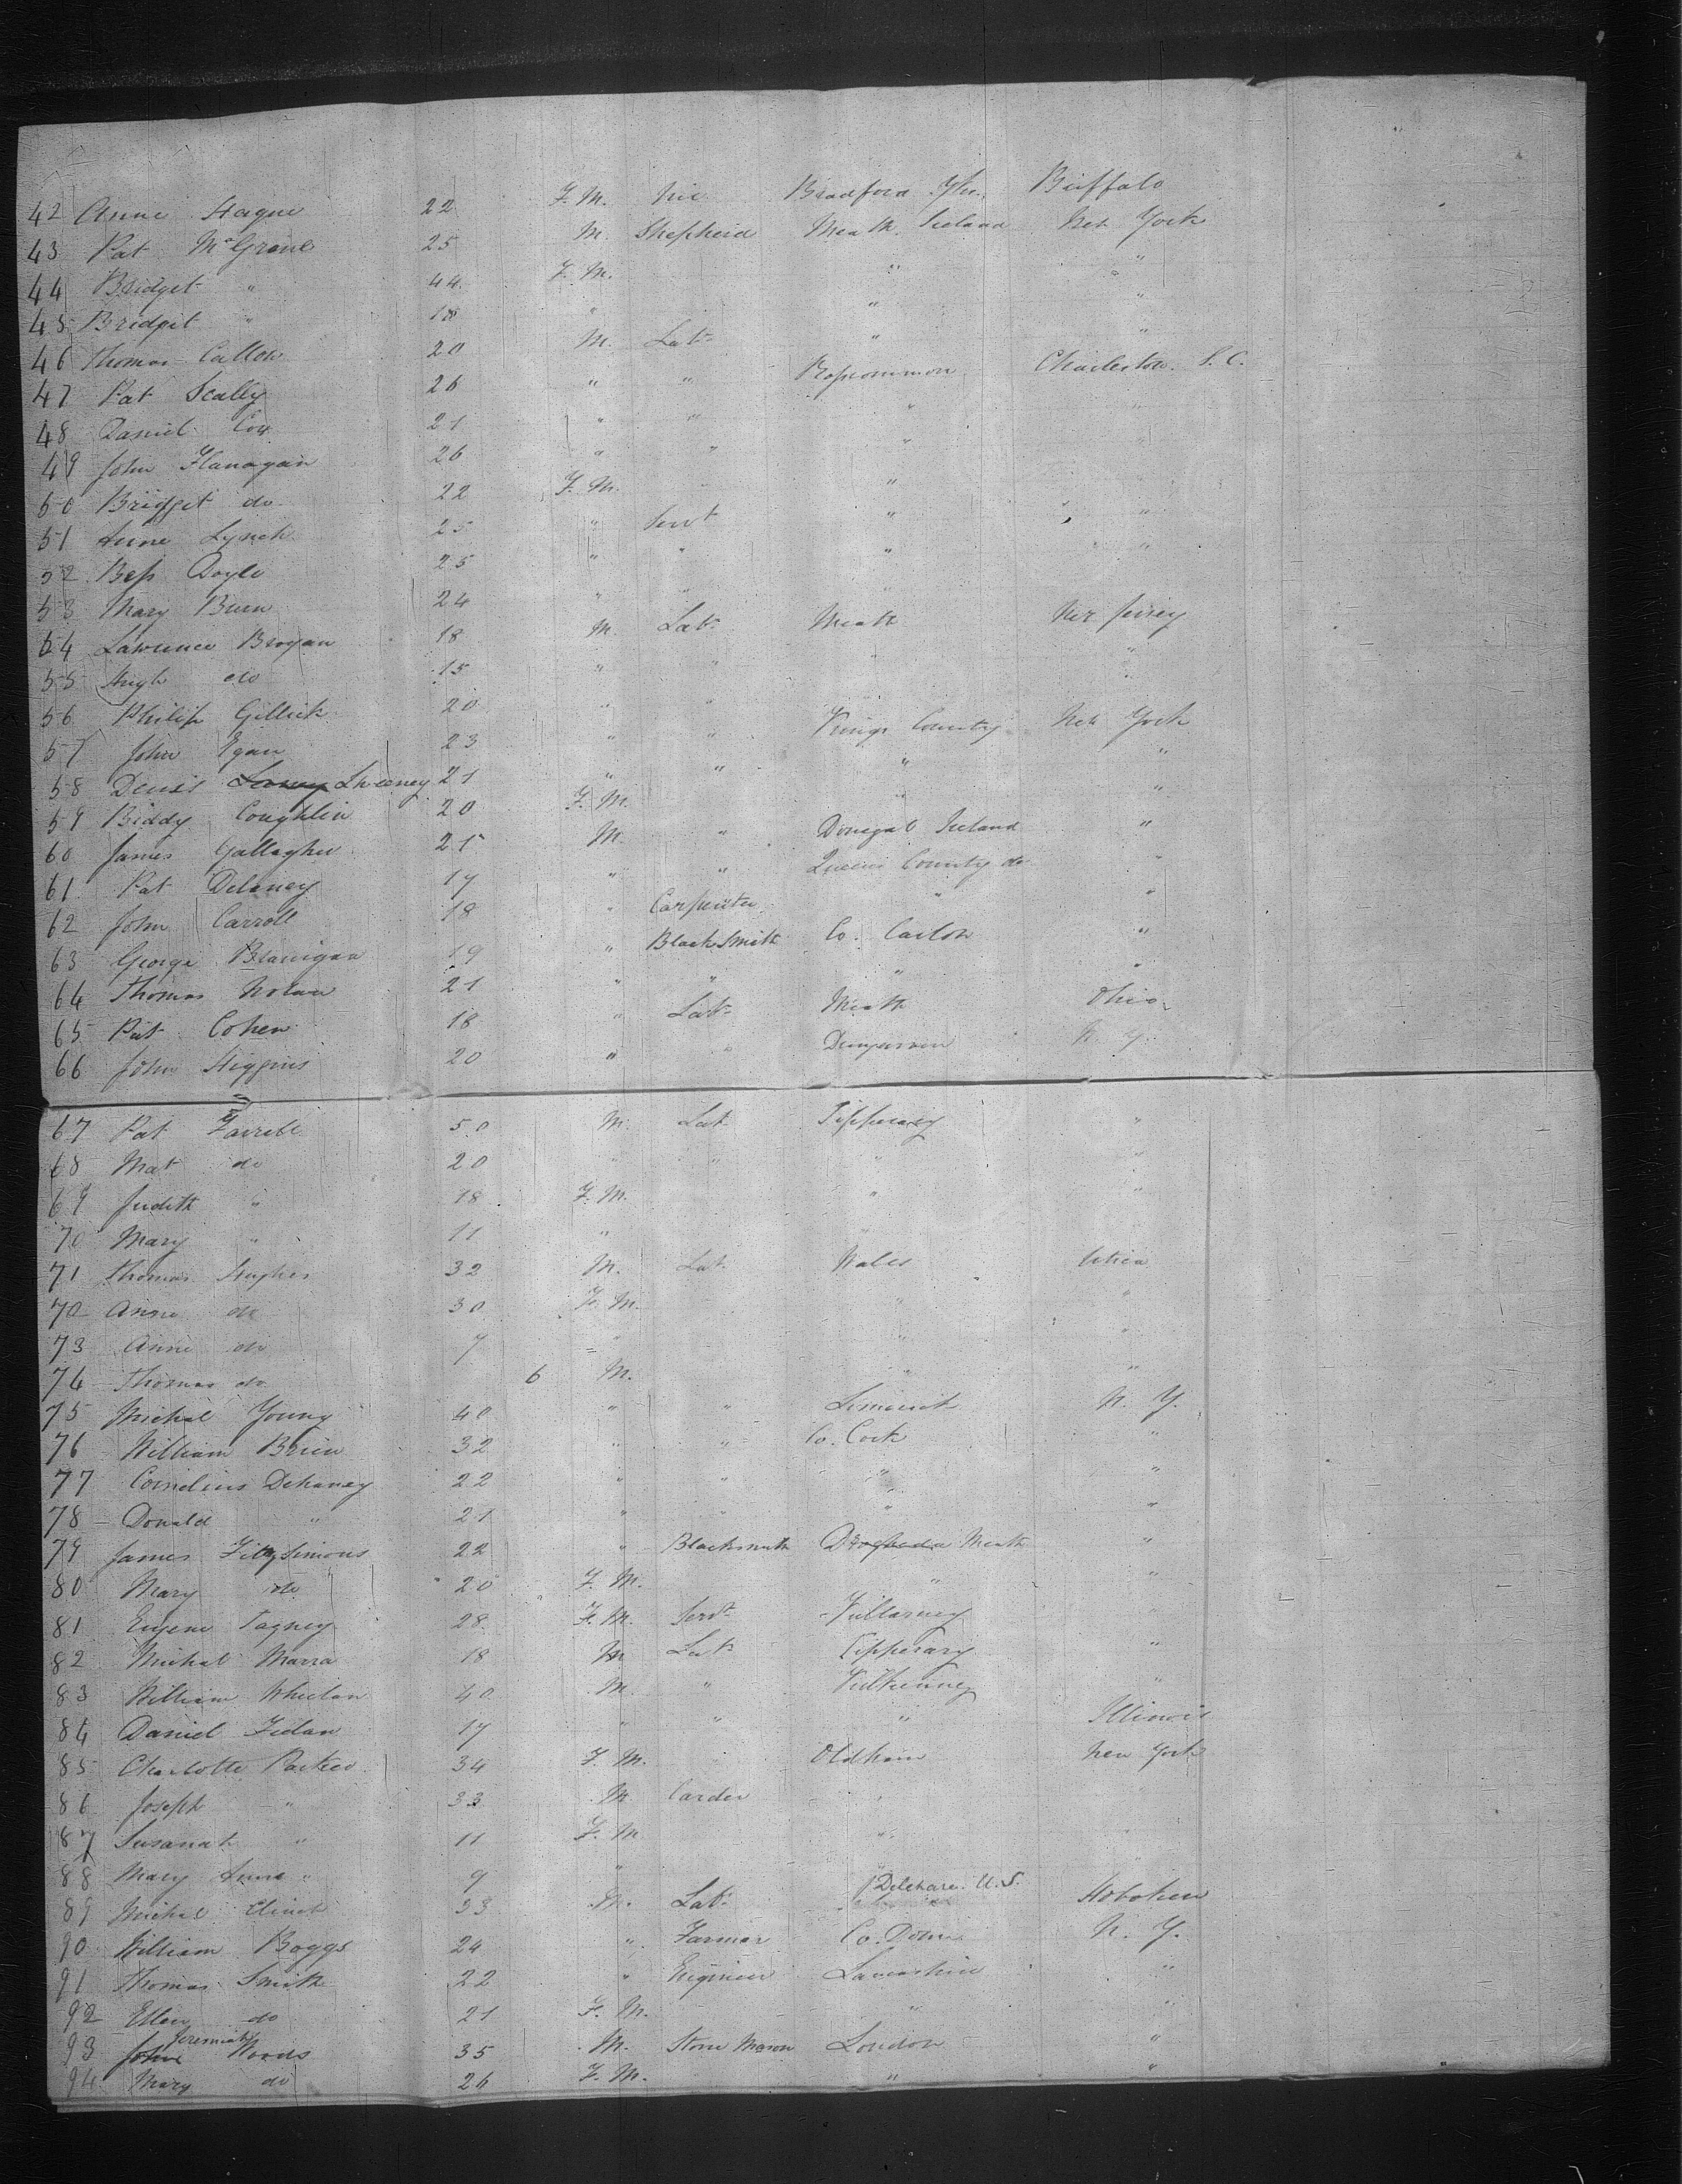 42 Anne Hague 22 F. M. Bradford Buffalo
43 Pat McGrane 25 M. Shepherd Meath Ireland New York
44 Bridget " 44 F. M. " "
45 Bridget " 18 " " "
46 Thomas Callow 20 M. Labr " "
47 Pat Scally 26 " " Roscommon Charleston. S. C.
48 Daniel Cox 21 " " " "
49 John Flanagan 26 " " " "
50 Bridget do 22 F. M. " "
51 Anne Lynch 25 " Servt " "
52 Bess Doyle 25 " " " "
53 Mary Bruen 24 " " "
54 Lawrence Brogan 18 M. Labr Meath New Jersey
55 Hugh do 15 " " " "
56 Philip Gillick 20 " " "
57 John Egan 23 " " Kings County New York
58 Denis Sweeney 21 " " " "
59 Biddy Coughlin 20 F. M. " "
60 James Gallagher 21 M. " Donegal Ireland "
61 Pat Delaney 17 " " Queens County do "
62 John Carroll 18 " Carpenter " "
63 George Branigan 19 " BlackSmith Co. Carlow "
64 Thomas Nolan 21 " " " "
65 Pat Cohen 18 " Labr Meath Ohio
66 John Higgins 20 " " Dungarvan N. Y.
67 Pat Farrell 50 M. Labr Tipperary "
68 Mat do 20 " " " "
69 Judith " 18 F. M. " "
70 Mary " 11 " "
71 Thomas Hughes 32 M. Labr Wales Utica
70 Anne do 30 F. M. " "
73 Anne do 7 " " "
74 Thomas do 6 M. " "
75 Michal Young 40 " " Limerick N. Y.
76 William Brien 32 " " Co. Cork "
77 Cornelius Dehaney 22 " " " "
78 Donald " 21 " " " "
79 James FitzSimons 22 " Blacksmith Drogheda Meath "
80 Mary do 20 F. M. " "
81 Eugene Tagney 28 F. M. Servt Killarney "
82 Michal Marra 18 M Labr Tipperary "
83 William Whelan 40 M. " Kilkenney "
84 Daniel Felan 17 " " " Illinois
85 Charlotte 34 F. M. Oldham New York
86 Joseph " 33 M Carder "
87 Susanah " 11 F. M " "
88 Mary Anne " 9 " " "
89 Michal Clinch 33 M. Labr Delaware U. S. Hoboken
90 William Boggs 24 " Farmer Co. Down N. Y.
91 Thomas Smith 22 " Engineer Lancashire "
92 Ellen do 21 F. M. " "
93 John Jeremiah Woods 35 M. Stone Mason London "
94 Mary do 26 F. M. " "